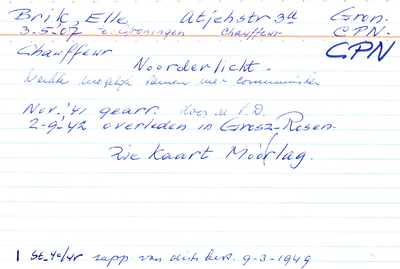 Brik, Elle Atjehstr 3a Gron.
3-5-07 te Groningen Chauffeur C.P.N.
Chauffeur CPN
Noorderlicht.
Werkte mogelijk samen met communisten
Nov. '41 gearr. door de S.D.
2-9-'42 overleden in Grosz-Rosen.
Zie Kaart Moorlag.
rapp. van distr. 9-3-1949